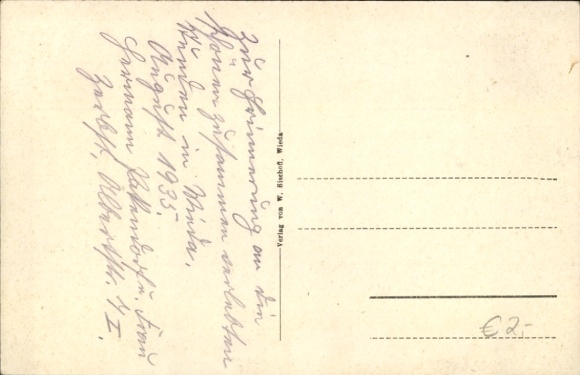 Zur Erinnerung an die
schönen zusammen verlebten
Stunden in Wieda.
August 1935.
Hermann u. Frau
Zerbst, Albertstr. 1 I.
Verlag von W. Bischof, Wieda
€ 2,-